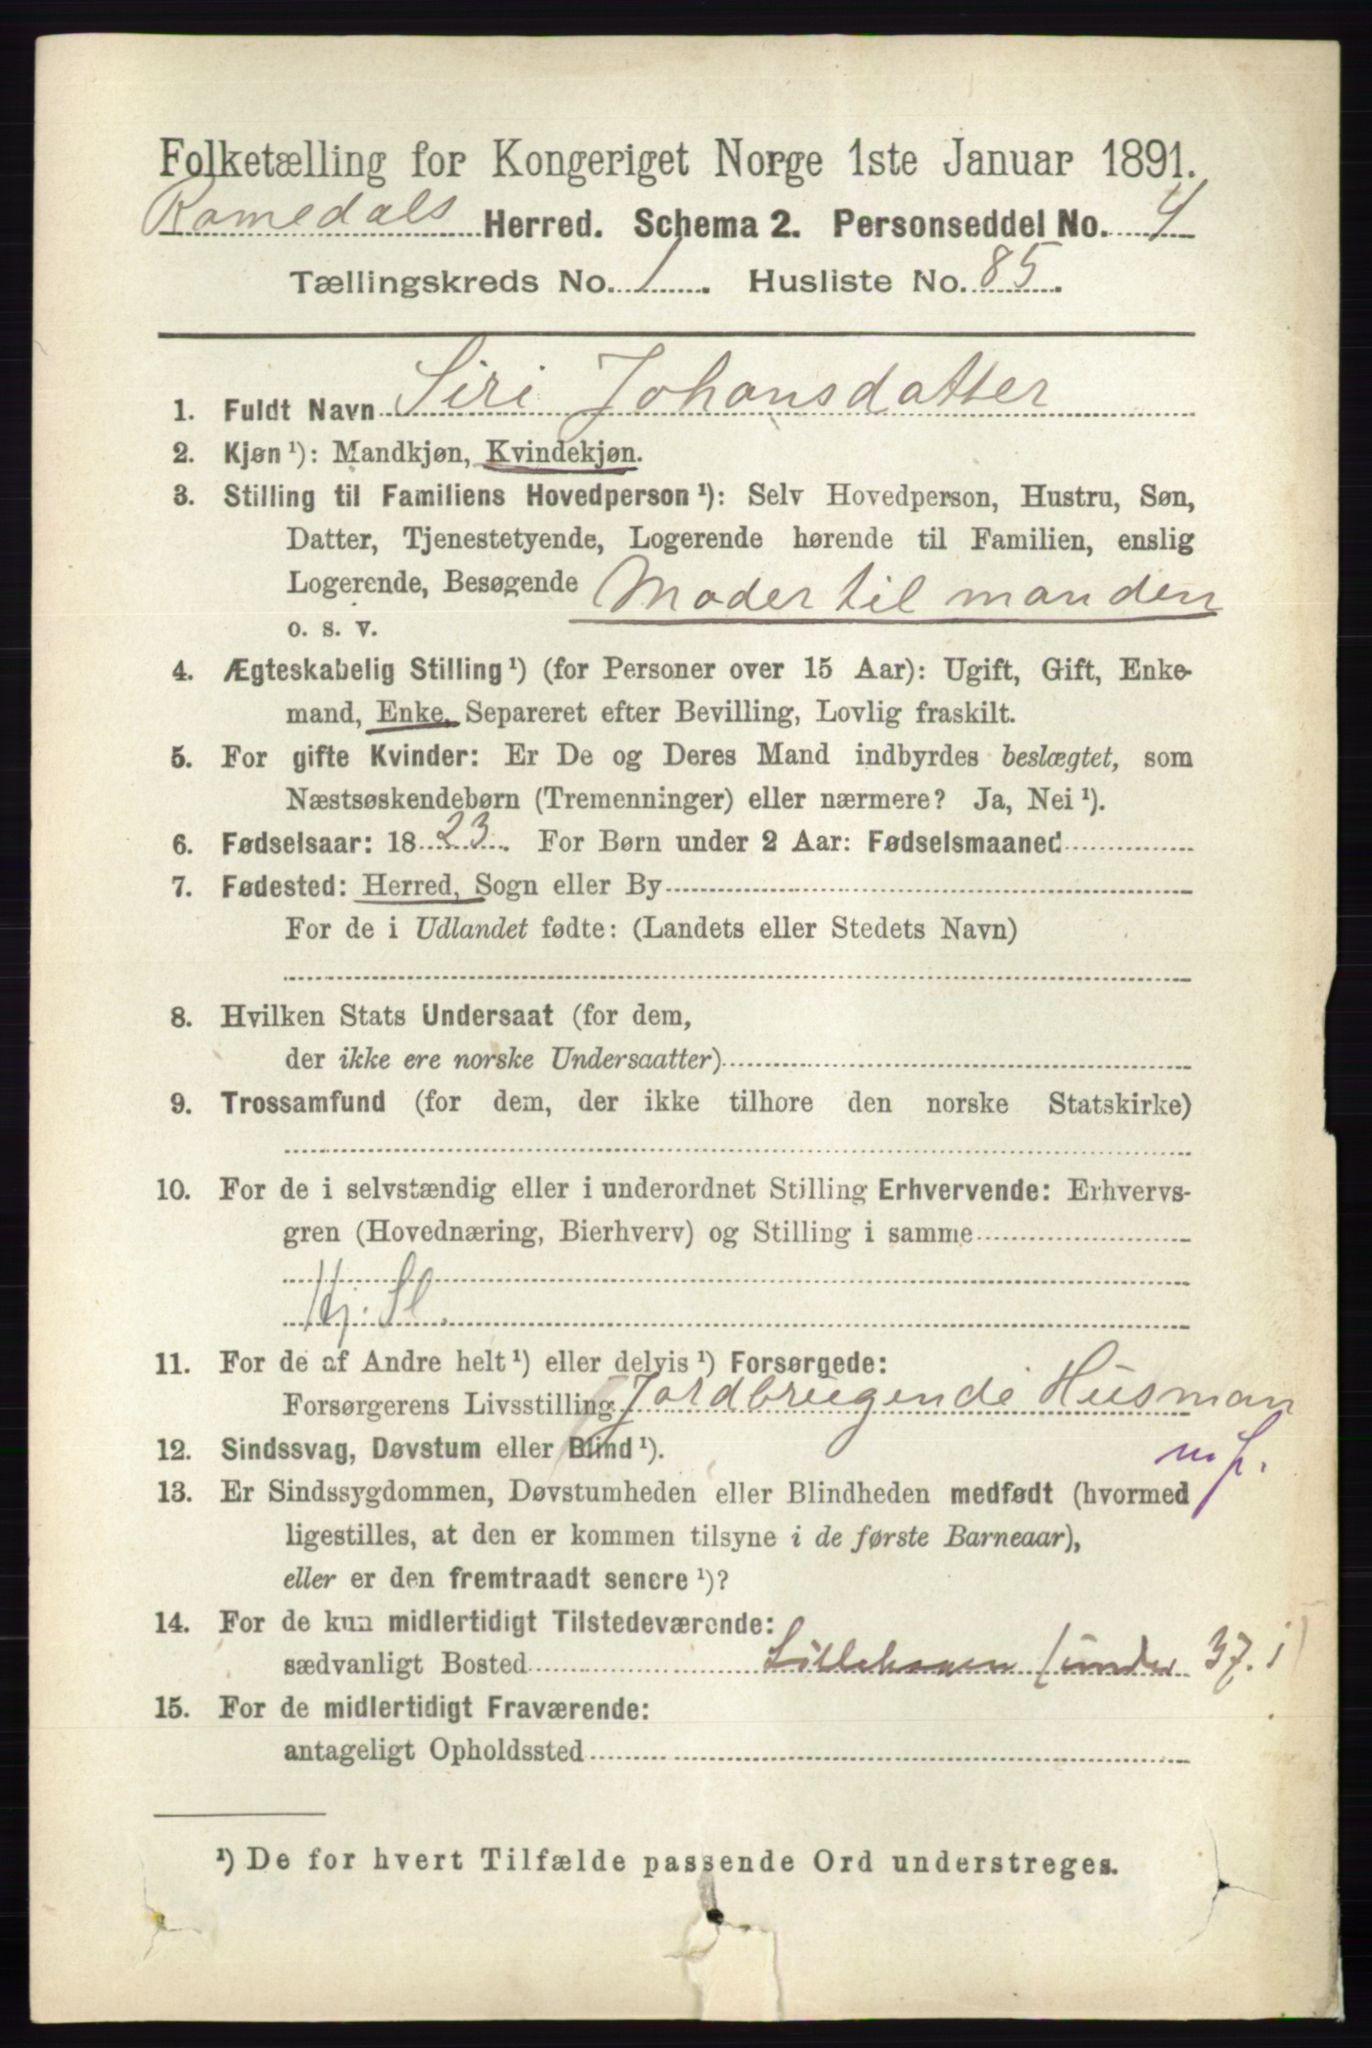 Folketælling for Kongeriget Norge 1ste Januar 1891.
Romedals Herred. Schema 2. Personseddel No. 4
Tællingskreds No. 1. Husliste No. 85.
1. Fuldt Navn Siri Johansdatter
2. Kjøn ¹): Mandkjøn, Kvindekjøn.
3. Stilling til Familiens Hovedperson ¹): Selv Hovedperson, Hustru, Søn,
Datter, Tjenestetyende, Logerende hørende til Familien, enslig
Logerende, Besøgende Moder til manden
o. s. v.
4. Ægteskabelig Stilling ¹) (for Personer over 15 Aar): Ugift, Gift, Enke-
mand, Enke, Separeret efter Bevilling, Lovlig fraskilt.
5. For gifte Kvinder: Er De og Deres Mand indbyrdes beslægtet, som
Næstsøskendebørn (Tremenninger) eller nærmere? Ja, Nei ¹).
6. Fødselsaar: 1823. For Børn under 2 Aar: Fødselsmaaned
7. Fødested: Herred, Sogn eller By
For de i Udlandet fødte: (Landets eller Stedets Navn)
8. Hvilken Stats Undersaat (for dem,
der ikke ere norske Undersaatter)
9. Trossamfund (for dem, der ikke tilhøre den norske Statskirke)
10. For de i selvstændig eller i underordnet Stilling Erhvervende: Erhvervs-
gren (Hovednæring, Bierhverv) og Stilling i samme
Hj. Sl.
11. For de af Andre helt ¹) eller delvis ¹) Forsørgede:
Forsørgerens Livsstilling Jordbrugende Husman
m. j.
12. Sindssvag, Døvstum eller Blind ¹).
13. Er Sindssygdommen, Døvstumheden eller Blindheden medfødt (hvormed
ligestilles, at den er kommen tilsyne i de første Barneaar),
eller er den fremtraadt senere ¹)?
14. For de kun midlertidigt Tilstedeværende:
sædvanligt Bosted Lillehagen (under 37. 1)
15. For de midlertidigt Fraværende:
antageligt Opholdssted
¹) De for hvert Tilfælde passende Ord understreges.